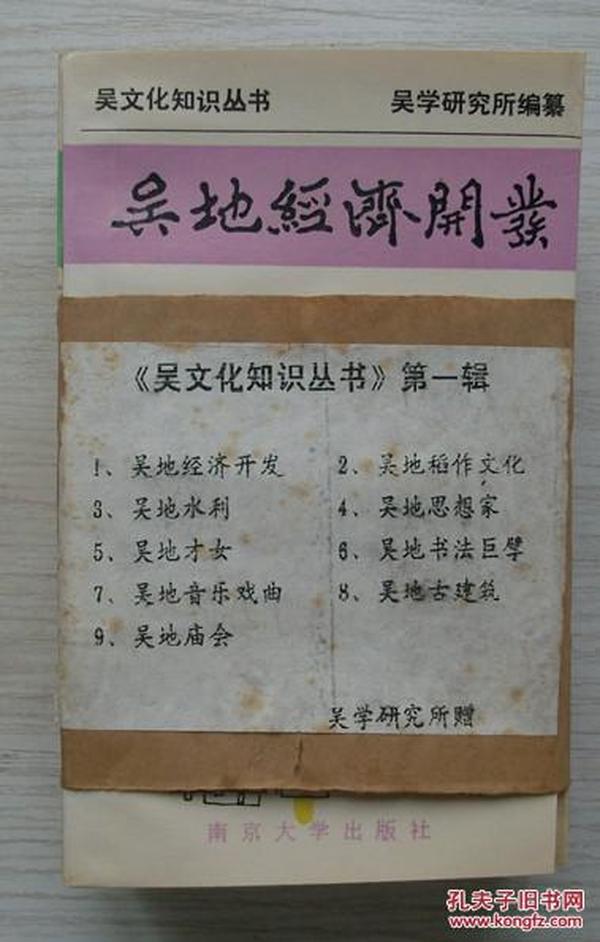 吴文化知识丛书 吴学研究所编纂
吴地經濟開發
《吴文化知识丛书》第一辑
1、吴地经济开发 2、吴地稻作文化
3、吴地水利 4、吴地思想家
5、吴地才女 6、吴地书法巨擘
7、吴地音乐戏曲 8、吴地古建筑
9、吴地庙会
吴学研究所赠
南京大学出版社
孔夫子旧书网
www.kongfz.com